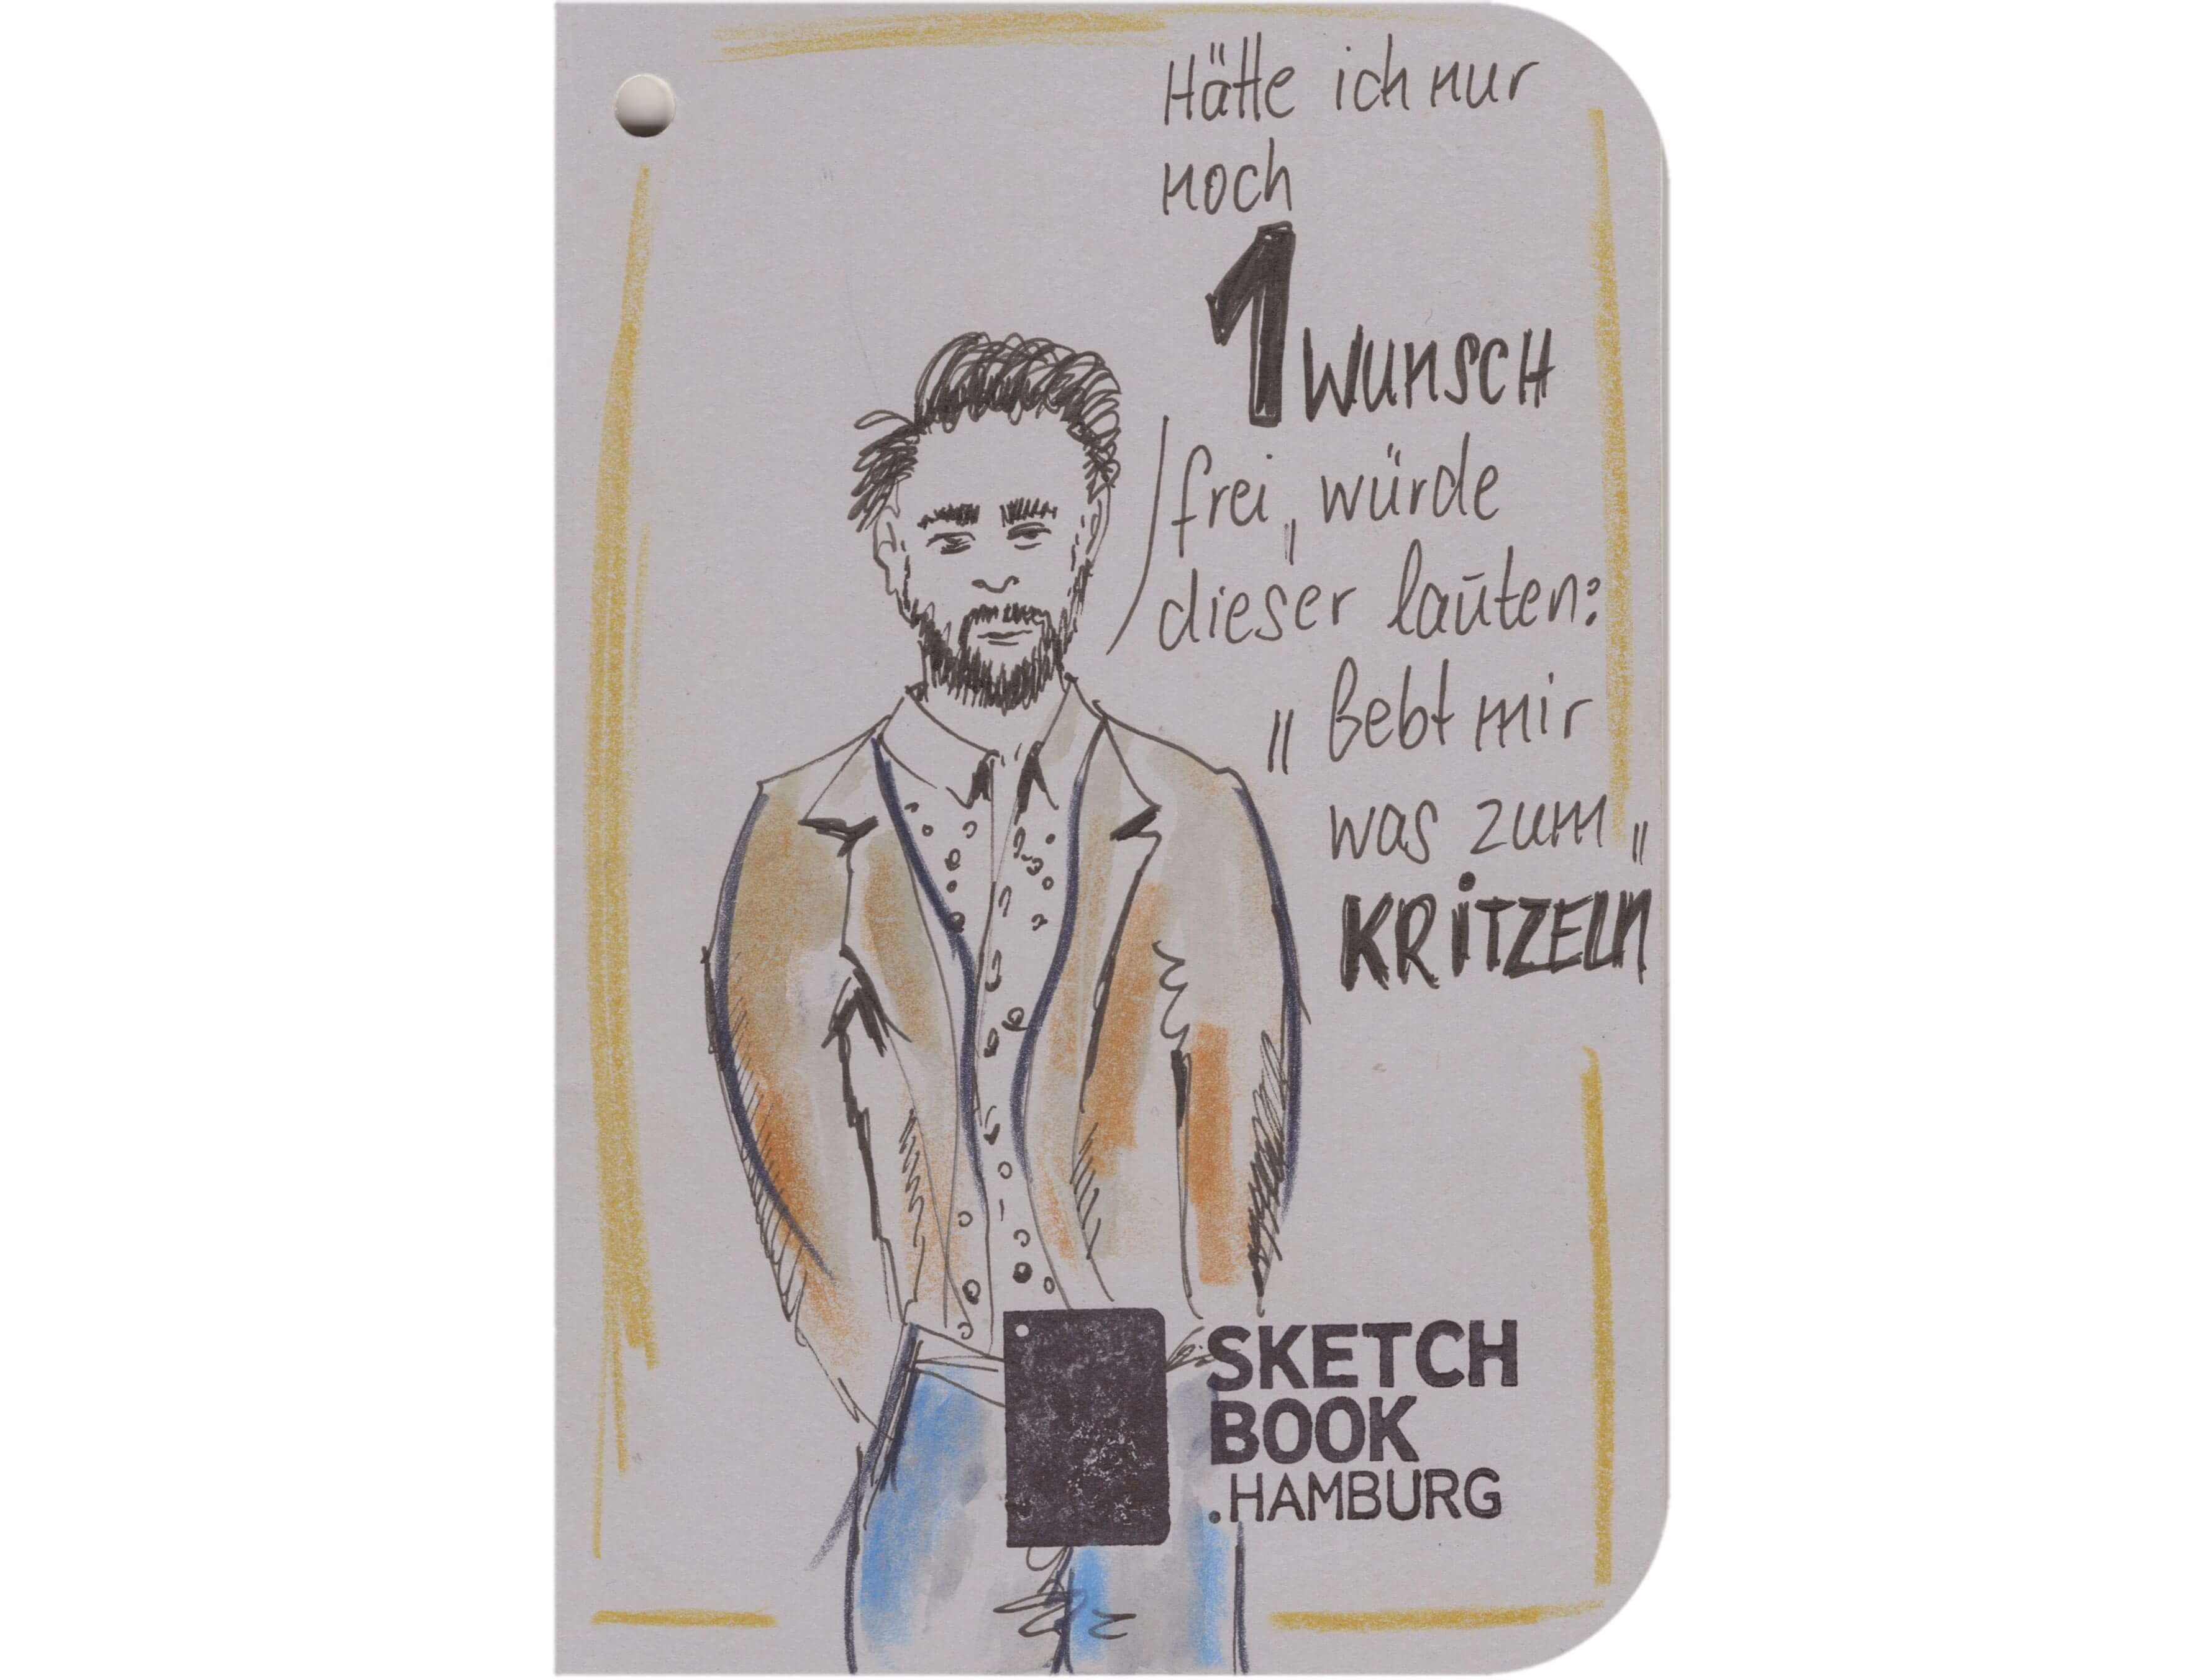 Hätte ich nur
noch
1 WUNSCH
frei, würde
dieser lauten:
„Gebt mir
was zum"
KRiTZELN
SKETCH
BOOK
.HAMBURG